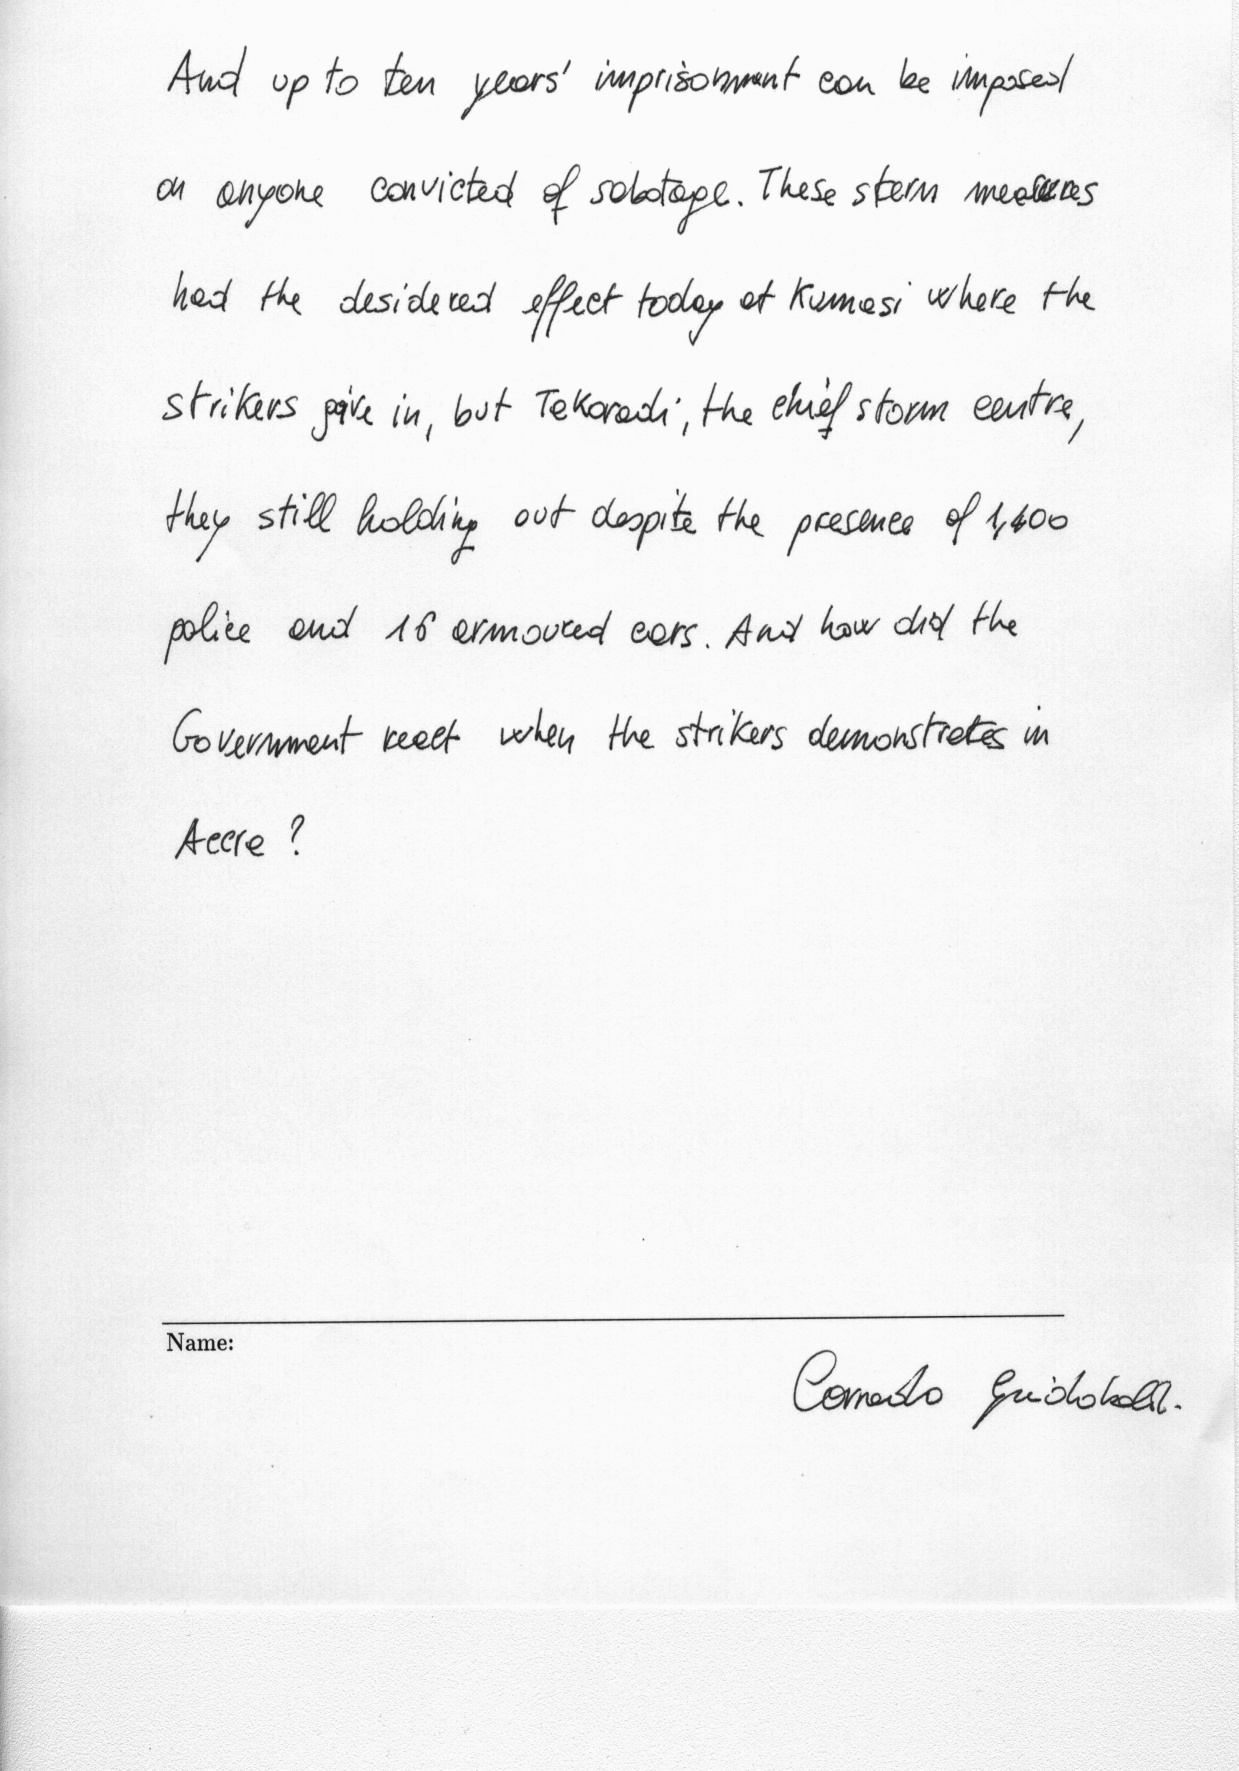 And up to ten years' imprisonment can be imposed
on anyone convicted of sabotage. These stern measures
had the desidered effect today at Kumasi where the
strikers give in, but Takoradi, the chief storm centre,
they still holding out despite the presence of 1,400
police and 16 armoured cars. And how did the
Government react when the strikers demonstrates in
Accra ?
Name:
Corrado